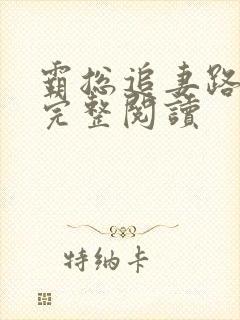 霸总追妻路
完整閱讀
特纳卡